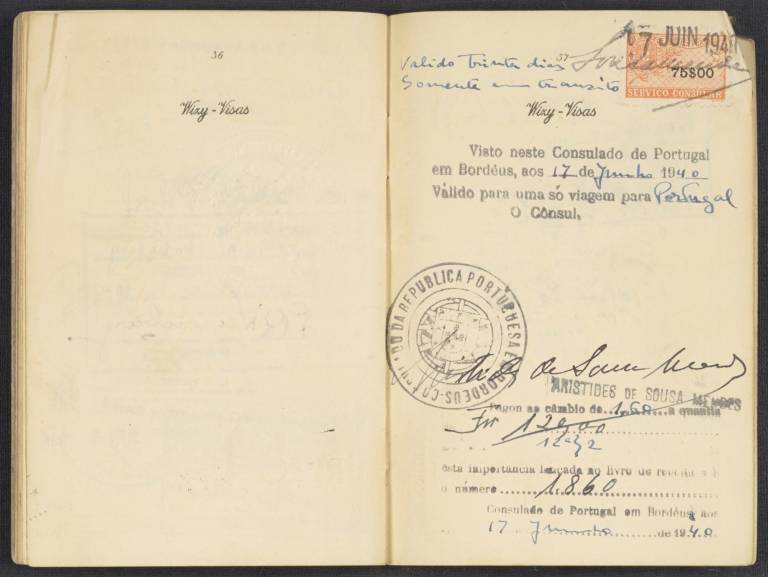 36
Wizy - Visas
17 JUIN 1940
37
Valido Trinta dias
Somente em transito
75$00
SERVIÇO CONSULAR
Wizy - Visas
Visto neste Consulado de Portugal
em Bordéus, aos 17 de Junho 1940
Válido para uma só viagem para Portugal
O Cônsul,
DA REPUBLICA PORTUGUESA EM BORDEUS
de Sousa Mendes
ARISTIDES DE SOUSA MENDES
Pagou ao câmbio de 1,60 a quantia
esta importancia lançada no livro de receita
o número 1860
Consulado de Portugal em Bordéus aos
17 Junho de 1940.